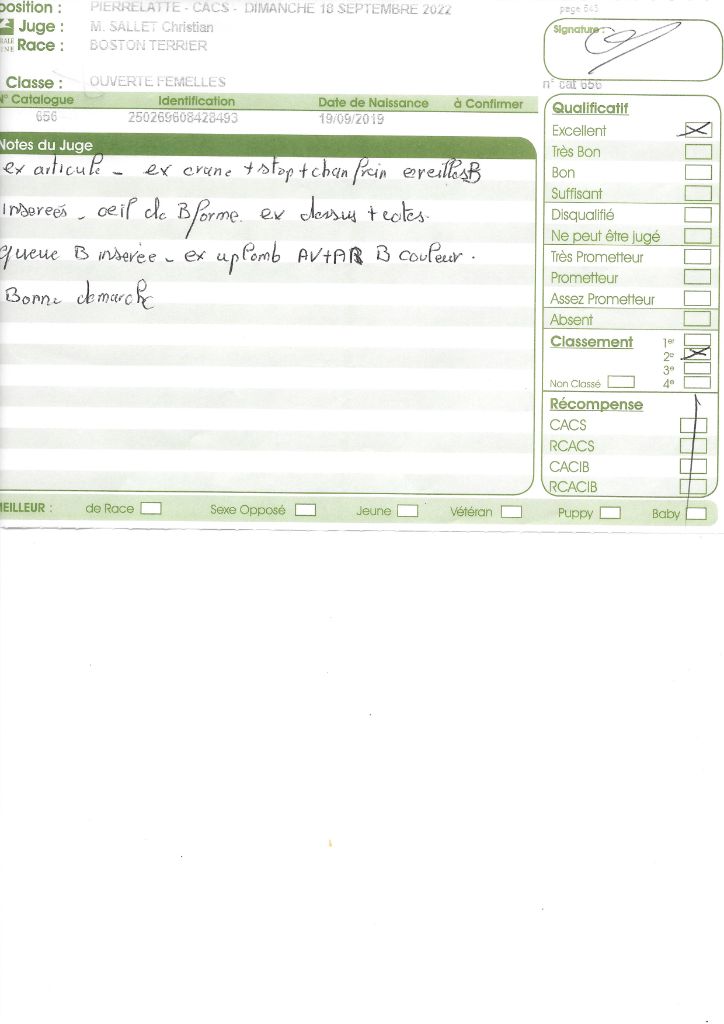 position : PIERRELATTE - CACS - DIMANCHE 18 SEPTEMBRE 2022
page 643
Juge : M. SALLET Christian
Signature :
Race : BOSTON TERRIER
Classe : OUVERTE FEMELLES
n° cat 656
N° Catalogue Identification Date de Naissance à Confirmer
656 250269608428493 19/09/2019
Notes du Juge
ex articulé - ex crane + stop + chanfrein oreilles B
inserées - oeil de B forme. ex dessus + cotes.
queue B inserée - ex aplomb AV+AR B couleur.
Bonne demarche
Qualificatif
Excellent
Très Bon
Bon
Suffisant
Disqualifié
Ne peut être jugé
Très Prometteur
Prometteur
Assez Prometteur
Absent
Classement 1er
2e
3e
Non Classé 4e
Récompense
CACS
RCACS
CACIB
RCACIB
MEILLEUR : de Race Sexe Opposé Jeune Vétéran Puppy Baby